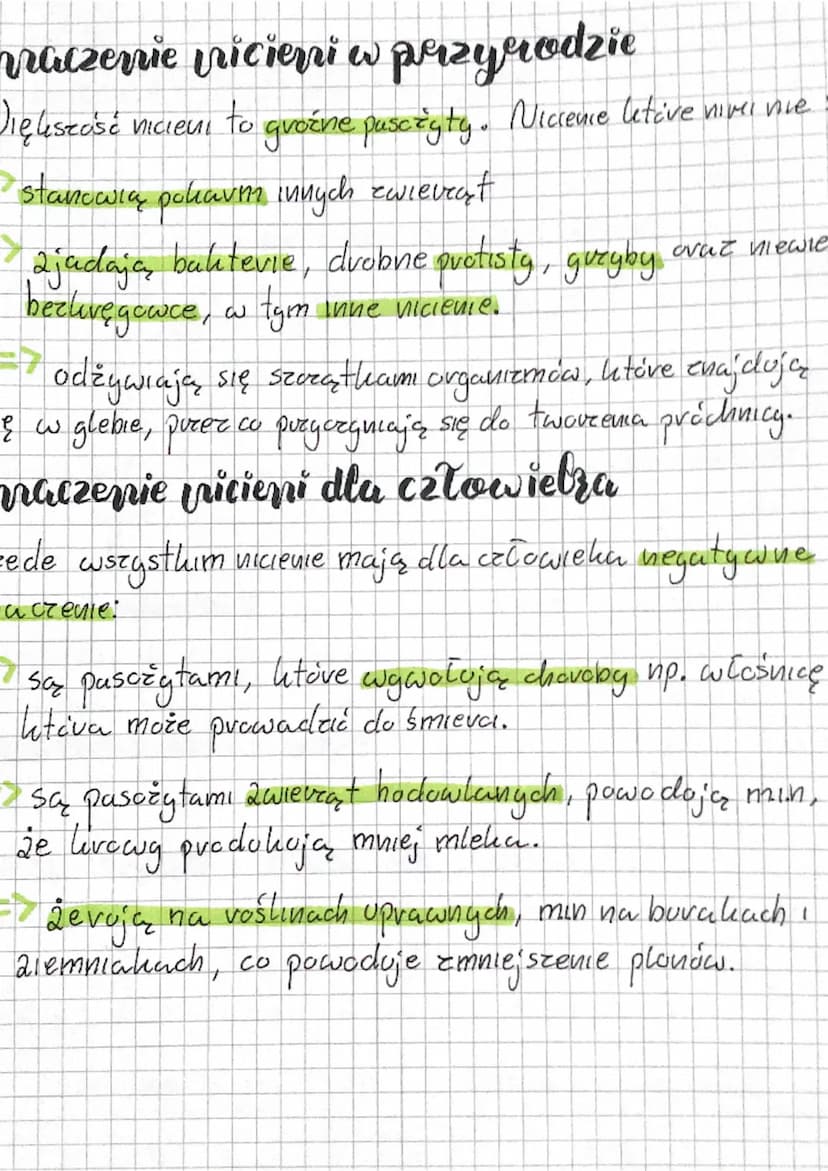 naczenie nicieni w przyrodzie
Większość nicieni to groźne pasożyty. Nicienie które nimi nie :
=> stanowią pokarm innych zwierząt
=> zjadają bakterie, drobne protisty, grzyby oraz niewie
bezkręgowce, w tym inne nicienie.
=> odżywiają się szczątkami organizmów, które znajdują
ę w glebie, przez co przyczyniają się do tworzenia próchnicy.
naczenie nicieni dla człowieka
zede wszystkim nicienie mają dla człowieka negatywne
aczenie:
=> są pasożytami, które wywołują choroby np. włośnicę
która może prowadzić do śmierci.
=> są pasożytami zwierząt hodowlanych, powodują min,
że krowy produkują mniej mleka.
=> żerują na roślinach uprawnych, min na burakach i
ziemniakach, co powoduje zmniejszenie plonów.